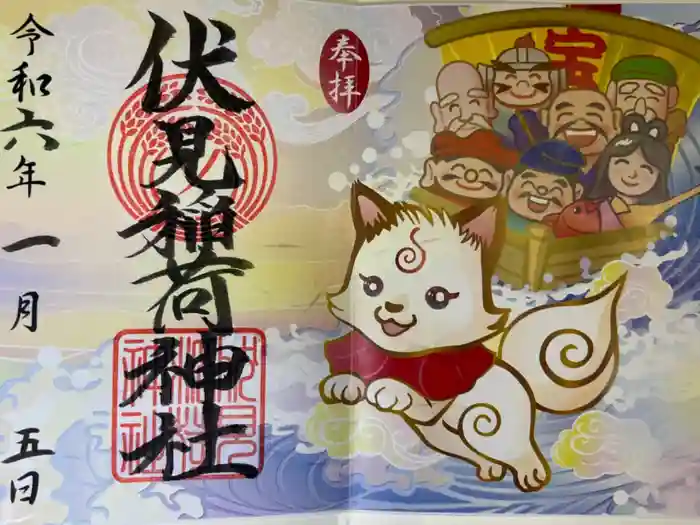 奉拝
伏見稲荷神社
令和六年一月五日
宝